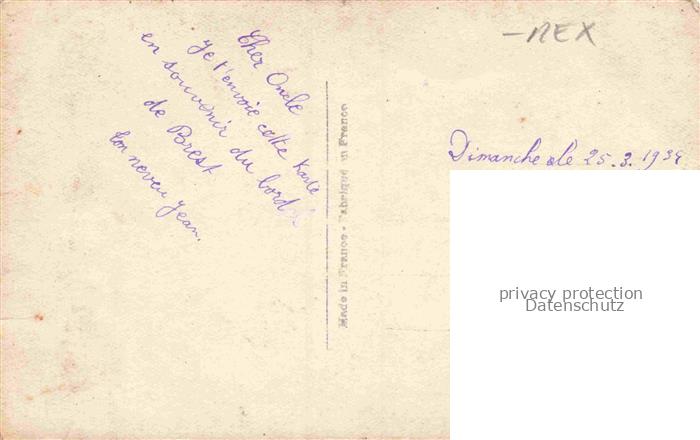 Cher Oncle
Je t'envoie cette karte
en souvenir du bord
de Brest
ton neveu Jean.
Made in France - Fabriqué en France
- REX
Dimanche le 25.3.1934
privacy protection
Datenschutz